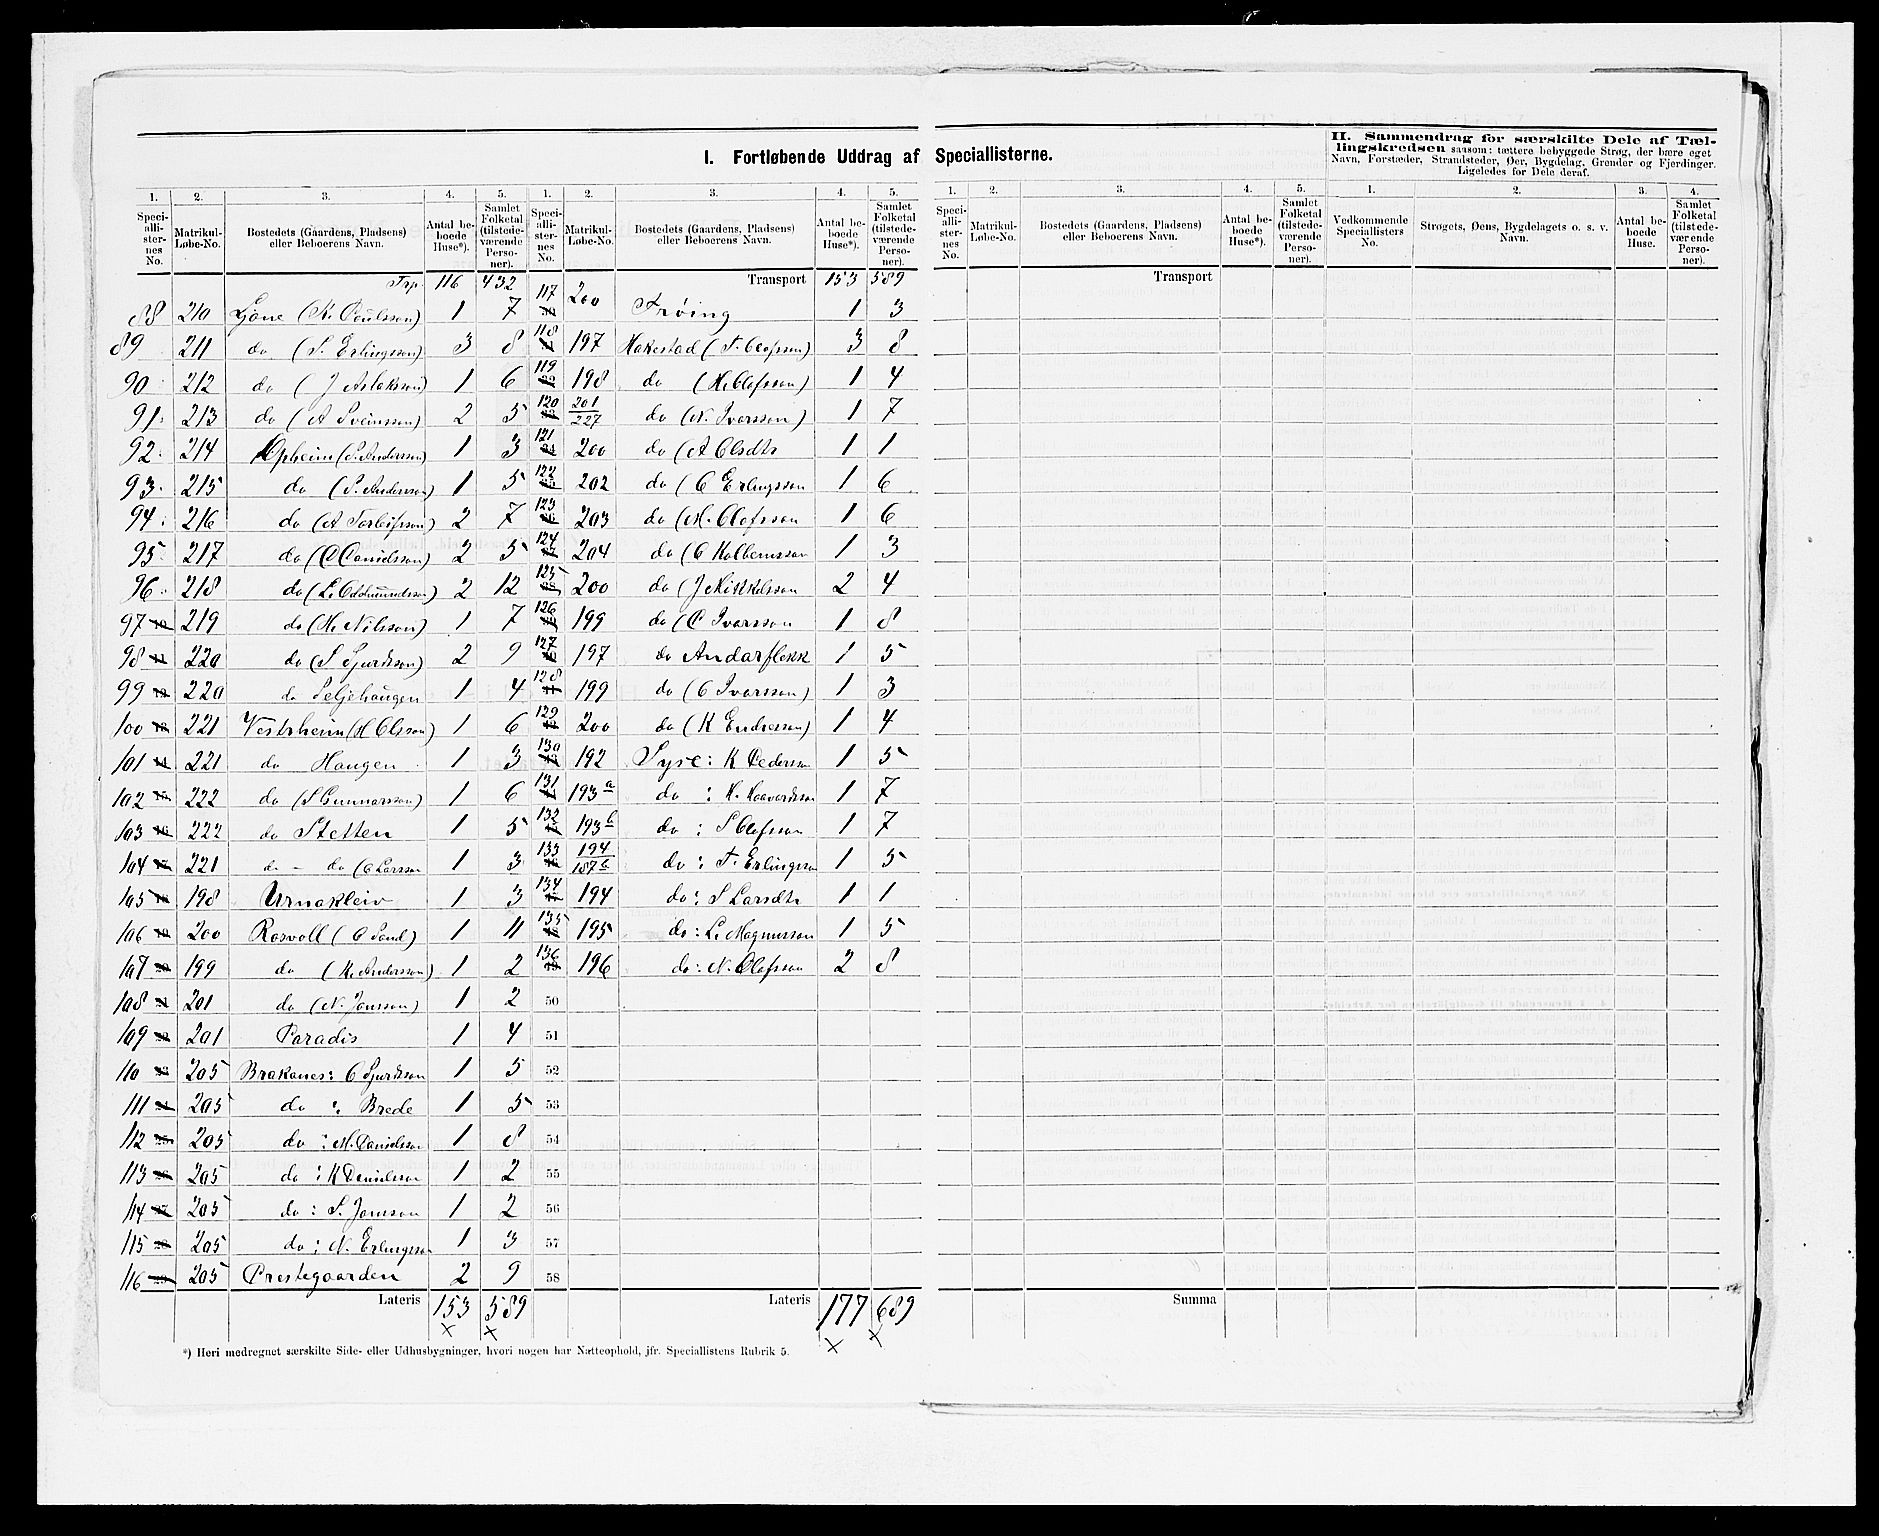 I. Fortløbende Uddrag af Speciallisterne.
II. Sammendrag for særskilte Dele af Tællingskredsen saasom: tættere bebyggede Strøg, der bære eget
Navn, Forstæder, Strandsteder, Øer, Bygdelag, Grender og Fjerdinger.
Ligeledes for Dele deraf.
1. 2. 3. 4. 5. 1. 2. 3. 4. 5. 1. 2. 3. 4. 5. 1. 2. 3. 4.
Speciallisternes No. Matrikul-Løbe-No. Bostedets (Gaardens, Pladsens) eller Beboerens Navn. Antal beboede Huse*). Samlet Folketal (tilstedeværende Personer).
Speciallisternes No. Matrikul-Løbe-No. Bostedets (Gaardens, Pladsens) eller Beboerens Navn. Antal beboede Huse*). Samlet Folketal (tilstedeværende Personer).
Speciallisternes No. Matrikul-Løbe-No. Bostedets (Gaardens, Pladsens) eller Beboerens Navn. Antal beboede Huse*). Samlet Folketal (tilstedeværende Personer).
Vedkommende Speciallisters No. Strøgets, Øens, Bygdelagets o. s. v. Navn. Antal beboede Huse. Samlet Folketal (tilstedeværende Personer).
Trp. 116 432
88 210 Ljone (K. Poulsson) 1 7
89 211 do (S. Erlingsson) 3 8
90 212 do (J Aslaksson) 1 6
91 213 do (A Sveinsson) 2 5
92 214 Opheim (S. Andersson) 1 3
93 215 do (S. Andersson) 1 5
94 216 do (A Torleifsson) 2 7
95 217 do (O Danielsson) 2 5
96 218 do (L. Oddmundsson) 2 12
97 219 do (H. Nilsson) 1 7
98 220 do (S Sjurdsson) 2 9
99 220 do Seljehaugen 1 4
100 221 Vestrheim (H Olsson) 1 6
101 221 do Haugen 1 3
102 222 do (S Gunnarsson) 1 6
103 222 do Stetten 1 5
104 221 do - do (O Larsson 1 3
105 198 Urnakleiv 1 3
106 200 Rosvoll (O Sand) 1 11
107 199 do (K. Andersson) 1 2
108 201 do (N. Jonsson) 1 2
109 201 Paradis 1 4
110 205 Brakanes: O Sjurdsson 1 5
111 205 do : Brede 1 5
112 205 do : M. Danielsson 1 8
113 205 do : K Danielsson 1 2
114 205 do : S. Jonsson 1 2
115 205 do : N. Erlingsson 1 3
116 205 Prestegaarden 2 9
Lateris 153 589
x x
Transport 153 589
117 200 Trøing 1 3
118 197 Hakestad (T. Olofsson) 3 8
119 198 do (H. Olofsson) 1 4
120 201/227 do (N. Ivarsson) 1 7
121 200 do (A Olsdtr 1 1
122 202 do (O Erlingsson 1 6
123 203 do (M. Olofsson 1 6
124 204 do (O Kolbeinsson 1 3
125 200 do (J Mikkelsson 2 4
126 199 do (O Ivarsson 1 8
127 197 do Andarflekk 1 5
128 199 do (O Ivarsson) 1 3
129 200 do (K Endresson) 1 4
130 192 Syse: K Pedersson 1 5
131 193 a do : H. Haavardsson 1 7
132 193 b do : S Olofsson 1 7
133 194/187 b do : T. Erlingsson 1 5
134 194 do : S Larsdtr 1 1
135 195 do : L. Magnusson 1 5
136 196 do : N. Olofsson 2 8
50
51
52
53
54
55
56
57
58
Lateris 177 689
x x
Transport
Summa
*) Heri medregnet særskilte Side- eller Udhusbygninger, hvori nogen har Natteophold, jfr. Speciallistens Rubrik 5.